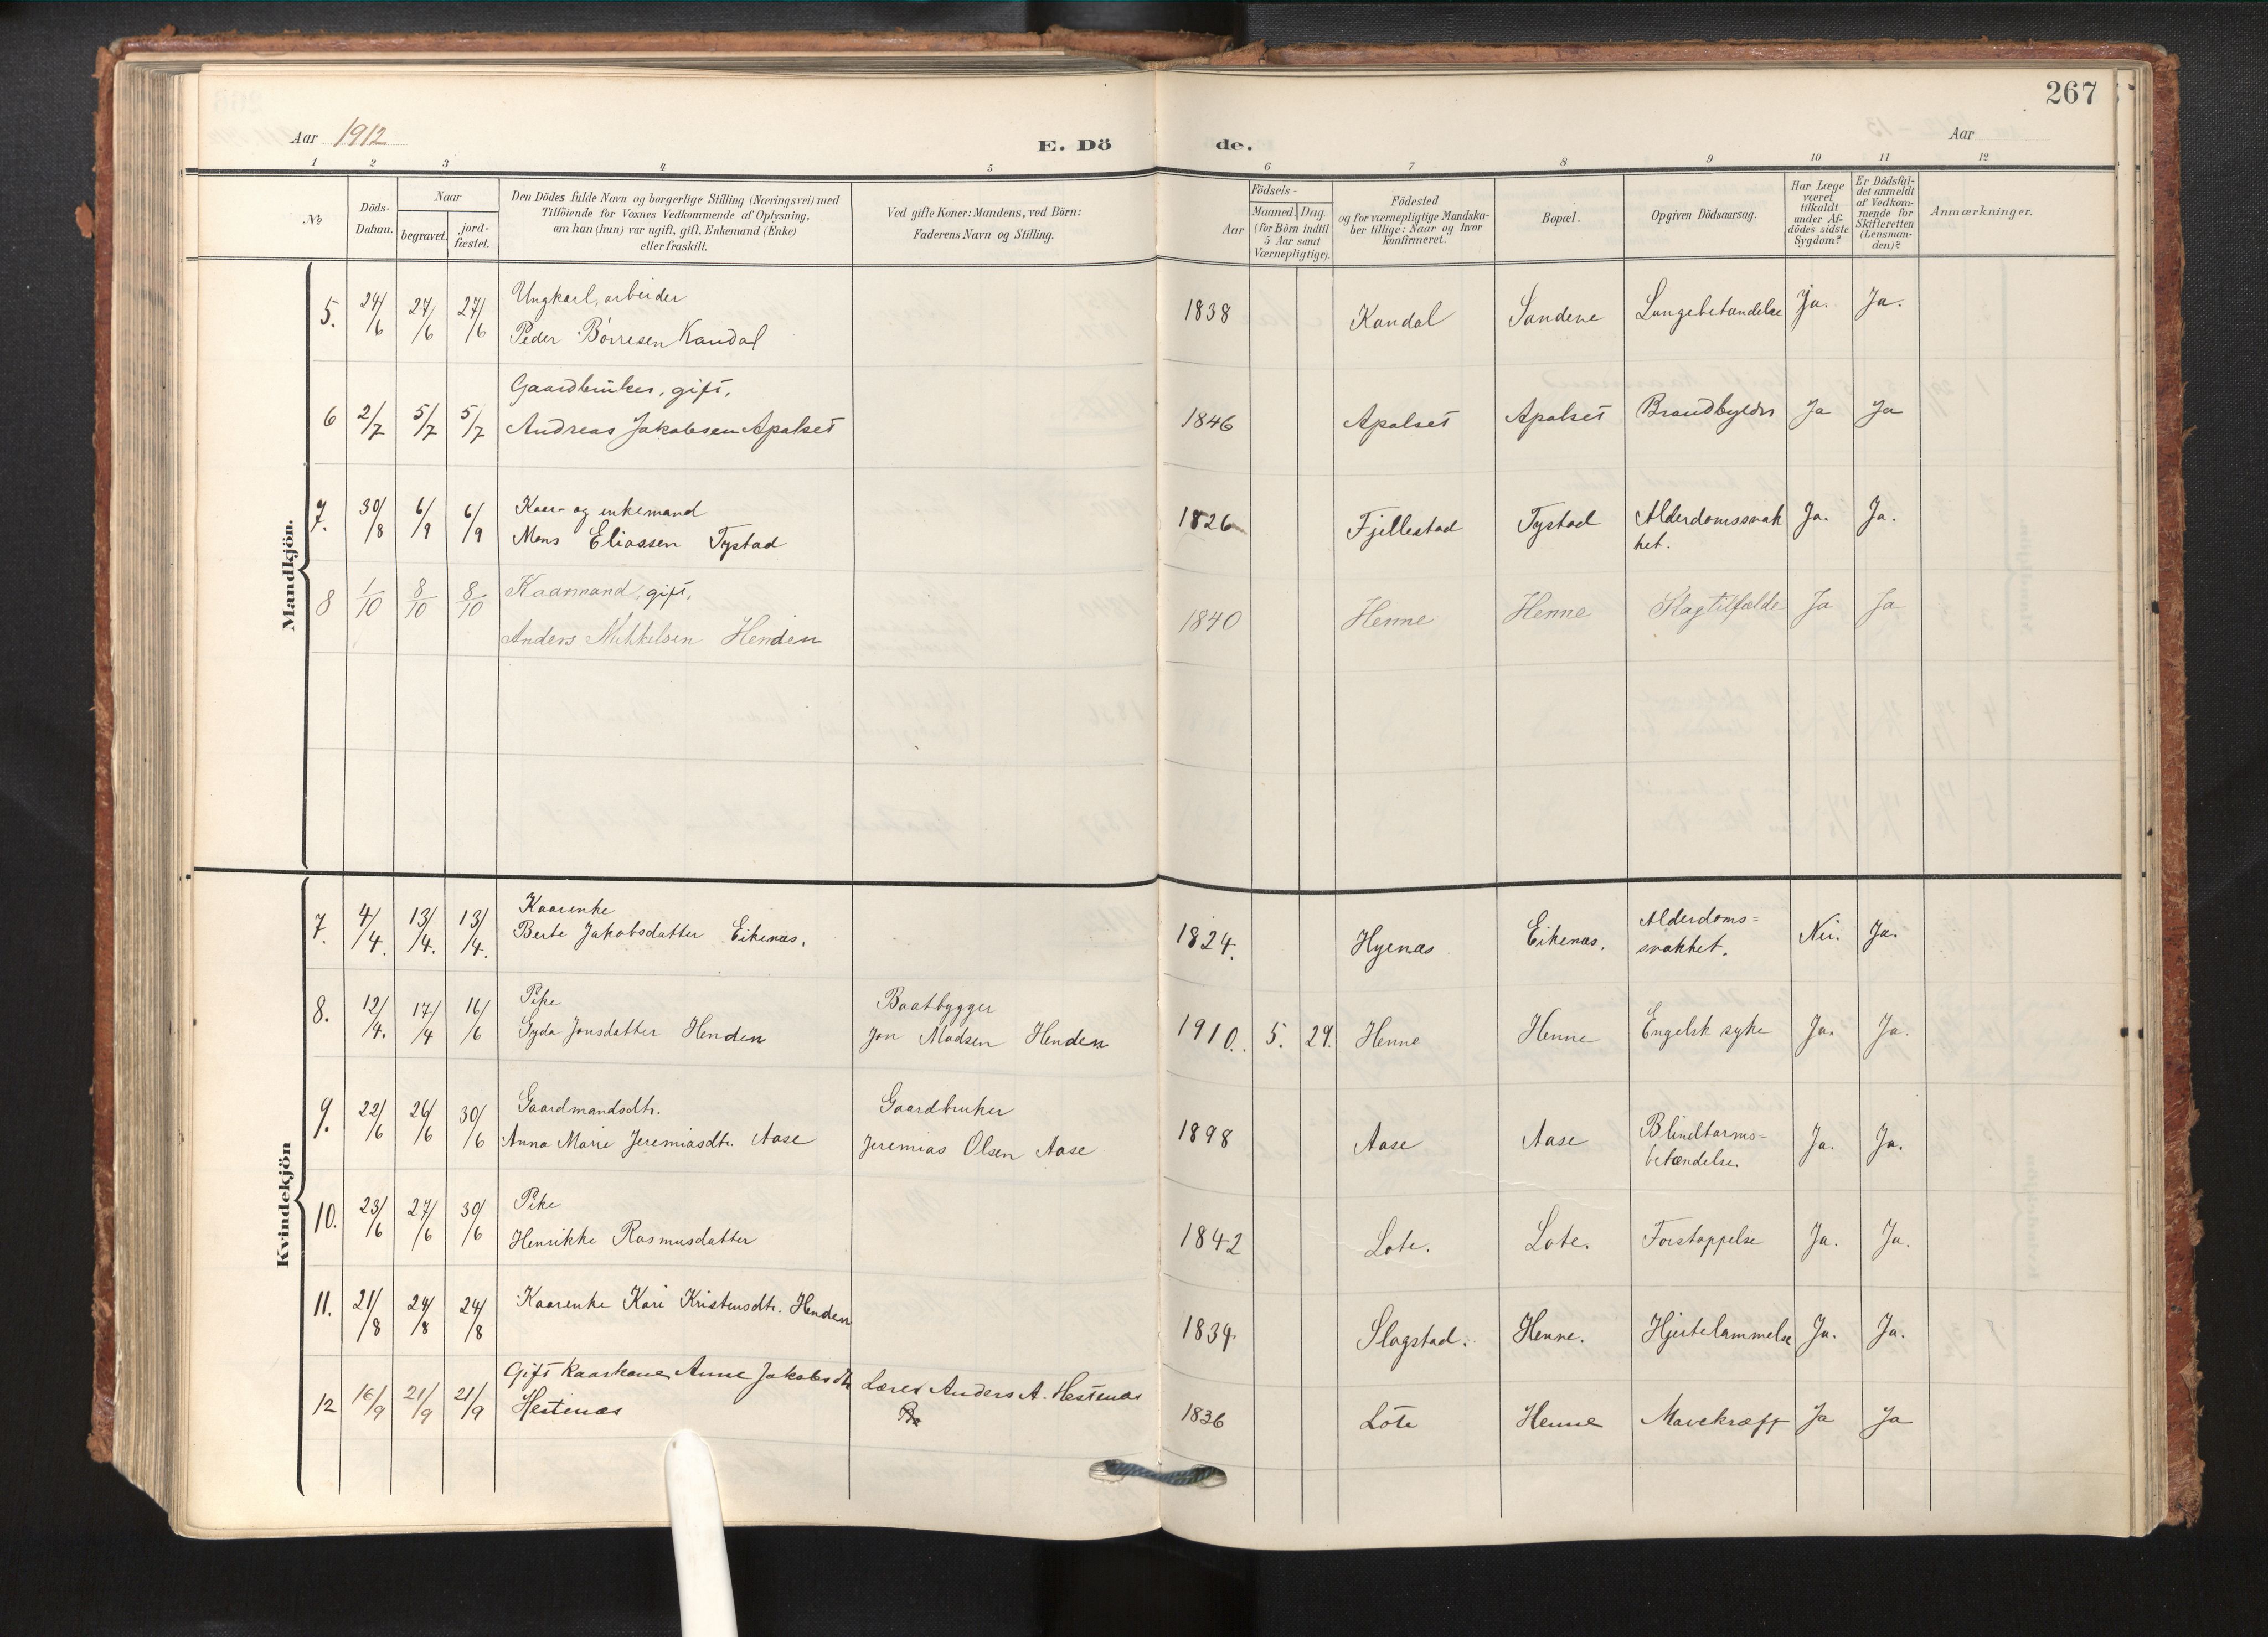 267
Aar 1912
E. Dö
de.
Aar
1 2 3 4 5 6 7 8 9 10 11 12
№
Döds-Datum.
Naar
begravet.
jord-fæstet.
Den Dödes fulde Navn og borgerlige Stilling (Næringsvei) med
Tilföiende for Voxnes Vedkommende af Oplysning,
om han (hun) var ugift, gift, Enkemand (Enke)
eller fraskilt.
Ved gifte Koner: Mandens, ved Börn:
Faderens Navn og Stilling.
Födsels-
Aar
Maaned. Dag.
(for Börn indtil
5 Aar samt
Værnepligtige).
Födested
og for værnepligtige Mandska-
ber tillige: Naar og hvor
konfirmeret.
Bopæl.
Opgiven Dödsaarsag.
Har Læge
været
tilkaldt
under Af-
dödes sidste
Sygdom?
Er Dödsfal-
det anmeldt
af Vedkom-
mende for
Skifteretten
(Lensman-
den)?
Anmærkninger.
Mandkjön.
5. 24/6 27/6 27/6 Ungkarl, arbeider
Peder Børresen Kandal
1838 Kandal Sandene Lungebetændelse Ja. Ja.
6 2/7 5/7 5/7 Gaardbruker, gift,
Andreas Jakobsen Apalset
1846 Apalset Apalset Brandbylder Ja Ja
7. 30/8 6/9 6/9 Kaar- og enkemand
Mons Eliassen Tystad
1826 Fjellestad Tystad Alderdomssvak
het. Ja. Ja.
8 1/10 8/10 8/10 Kaarmand, gift,
Anders Mikkelsen Henden
1840 Henne Henne Slagtilfælde Ja Ja
Kvindekjön
7. 4/4. 13/4. 13/4. Kaarenke
Berte Jakobsdatter Eikenæs.
1824. Hyenæs Eikenæs. Alderdoms=
svakhet. Nei. Ja.
8. 12/4. 17/4 16/6 Pike
Gyda Jonsdatter Henden
Baatbygger
Jon Madsen Henden
1910. 5. 29. Henne Henne Engelsk syke Ja. Ja.
9. 22/6 26/6 30/6 Gaardmandsdtr.
Anna Marie Jeremiasdtr. Aase
Gaardbruker
Jeremias Olsen Aase
1898 Aase Aase Blindtarms=
betændelse. Ja. Ja.
10. 23/6 27/6 30/6 Pike
Henrikke Rasmusdatter
1842 Lote. Lote. Forstoppelse Ja. Ja.
11. 21/8 24/8 24/8 Kaarenke Kari Kristensdtr. Henden
1834. Slagstad. Henne. Hjertelammelse Ja. Ja.
12 16/9 21/9 21/9 Gift kaarkone Anne Jakobsdtr
Hestenæs
Lærer Anders A. Hestenæs
1836 Lote Henne Mavekræft Ja Ja